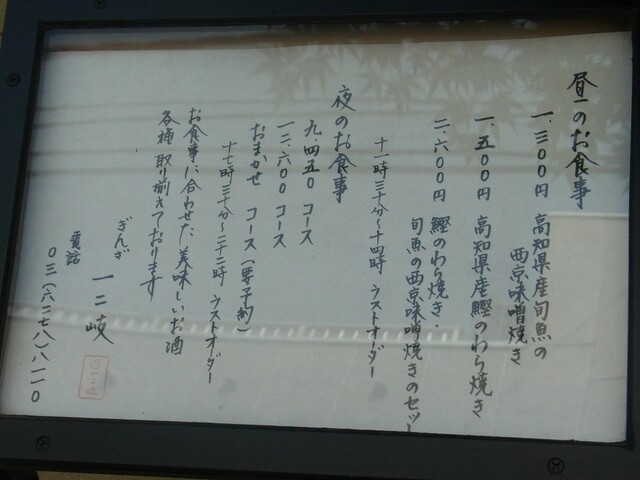 昼のお食事
一、三〇〇円 高知県産旬魚の
西京味噌焼き
一、五〇〇円 高知県産鰹のわら焼き
二、六〇〇円 鰹のわら焼き・
旬魚の西京味噌焼きのセット
十一時三十分～十四時 ラストオーダー
夜のお食事
九、四五〇 コース
一二、六〇〇 コース
おまかせ コース（要予約）
十七時三十分～二十二時 ラストオーダー
お食事に合わせた美味しいお酒
各種取り揃えております
ぎんざ 一二岐
電話
〇三（六二七八）八一一〇